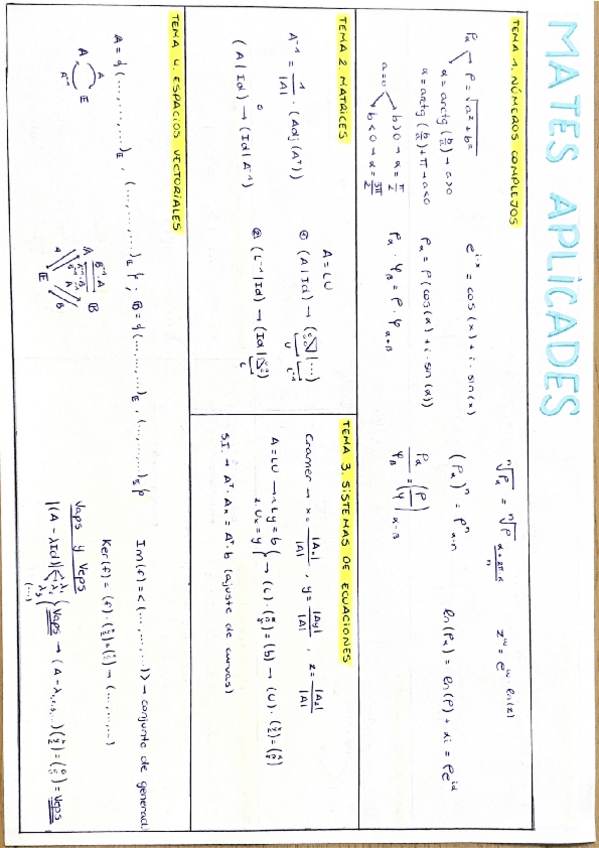 MATES APLICADES
TEMA 1. NÚMEROS COMPLEJOS
Pα
ρ = √a² + b²
α = arctg (b/a) → a>0
α = arctg (b/a) + π → a<0
a=0
b>0 → α = π/2
b<0 → α = 3π/2
e^(i·x) = cos(x) + i · sin(x)
ρα = ρ (cos(α) + i · sin(α))
ρα · φβ = ρ · φ α+β
ⁿ√ρα = ⁿ√ρ (α+2π·k)/n
(ρα)ⁿ = ρⁿ α·n
ρα / φβ = (ρ/φ) α-β
z^w = e^(w · ln(z))
ln(ρα) = ln(ρ) + αi = ρe^(iα)
TEMA 2. MATRICES
A⁻¹ = 1/|A| · (Adj(Aᵀ))
(A | Id) → (Id | A⁻¹)
A = LU
① (A | Id) → ( | ...)
U L⁻¹
② (L⁻¹ | Id) → (Id | )
L
TEMA 3. SISTEMAS DE ECUACIONES
Cramer → x = |Ax|/|A| , y = |Ay|/|A| , z = |Az|/|A|
A = LU → 1. Ly = b
2. Ux = y
→ (L) · = (b) → (U) ·
S.I. → Aᵀ · Ax = Aᵀ · b (ajuste de curvas)
TEMA 4. ESPACIOS VECTORIALES
A = {(..., ..., ...)E , (..., ..., ...)E} ; B = {(..., ..., ...)E , (..., ..., ...)E}
A A E A⁻¹
A B⁻¹·A B
A B
E
Im(f) = <(..., ..., ...)> → conjunto de generad.
Ker(f) = (f) · → (..., ..., ...)
Vaps y Veps
|(A - λId)| λ₁ λ₂ (...) } Vaps → (A - λ₁,₂,₃,...) = Veps